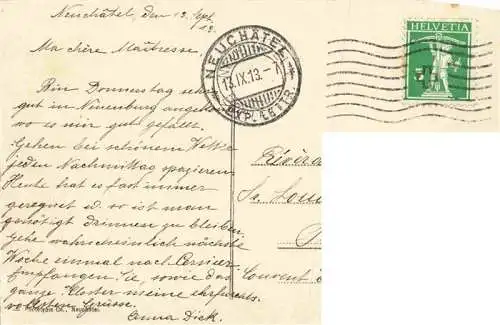 Neuchâtel, den 13. Sept.
13.
Ma chère Maîtresse.
Bin Donnerstag sehr
gut in Neuenburg angekom
wo es mir gut gefällt.
Gehen bei schönem Wetter
jeden Nachmittag spazieren
Heute hat es fast immer
geregnet u. so ist man
genötigt drinnen zu bleiben.
Gehe wahrscheinlich nächste
Woche einmal nach Cressier
Empfangen Sie, sowie das
ganze Kloster meine ehrfurchts
vollsten Grüsse.
Anna Dick.
NEUCHÂTEL
13.IX.13.-7
EXP. LETTR.
HELVETIA
5
Révére
Sr. Loui
Couvent
Co., Neuchâtel